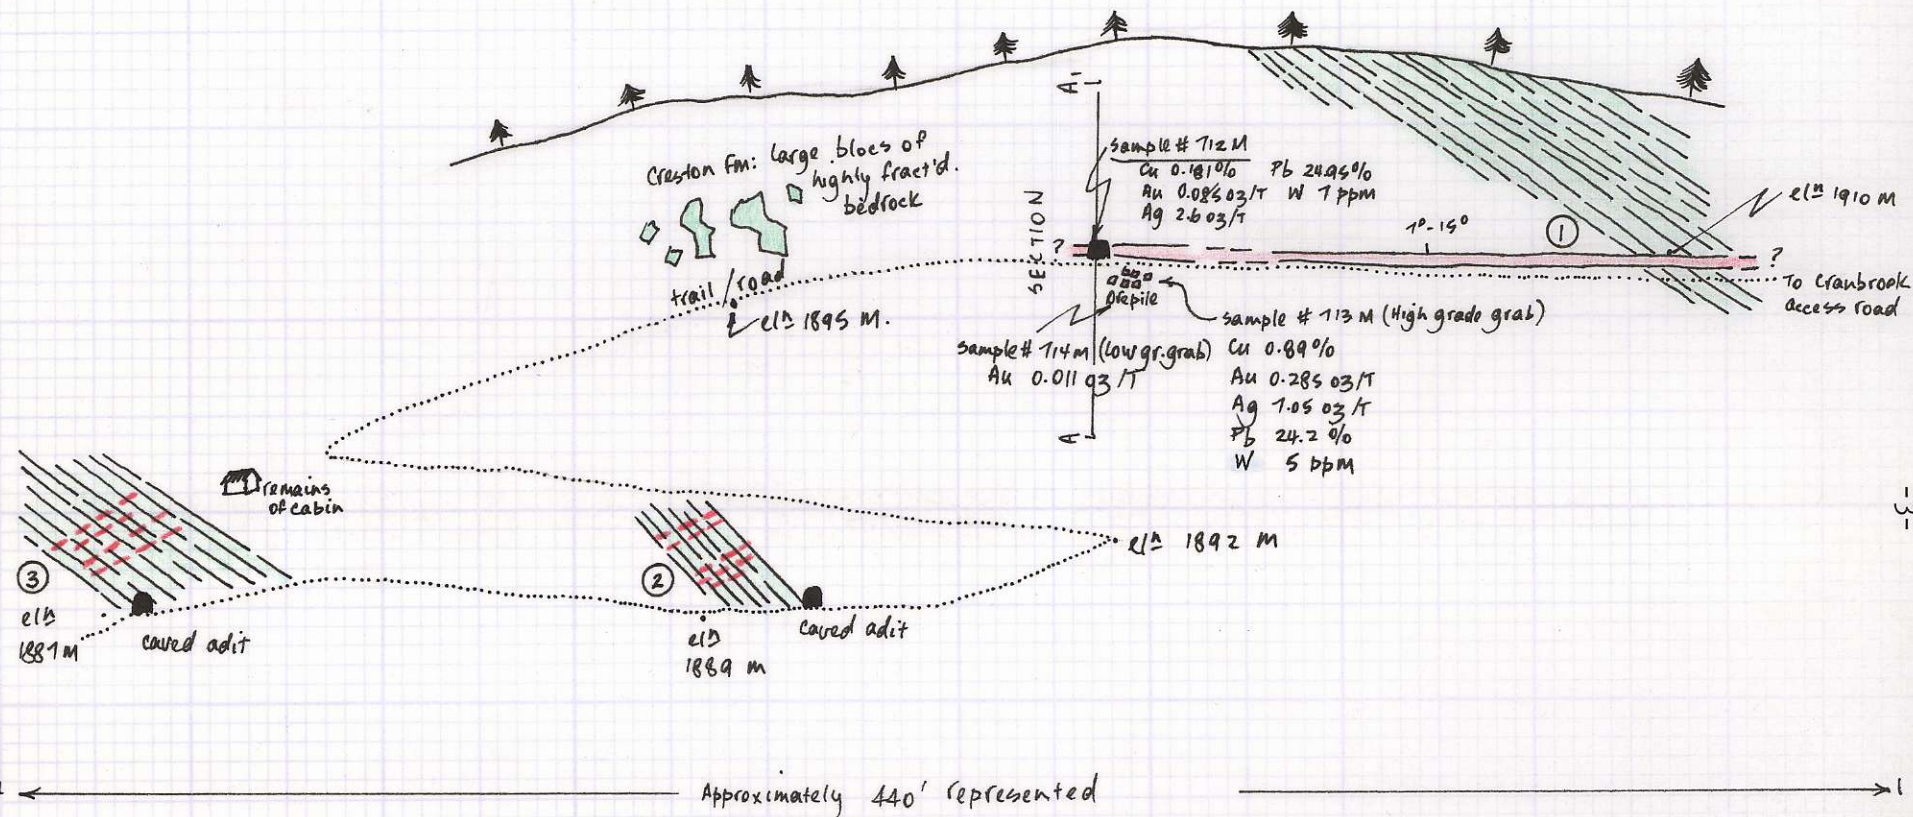 Creston Fm: large blocs of
highly fract'd.
bedrock
trail/road
eln 1895 M.
SECTION
A'
A
Sample # 712 M
Cu 0.181% Pb 24.95%
Au 0.085 oz/T W 7 ppm
Ag 2.6 oz/T
?
7°-15°
①
eln 1910 M
?
To Cranbrook
access road
Orepile
Sample # 713 M (High grade grab)
Cu 0.89%
Au 0.285 oz/T
Ag 7.05 oz/T
Pb 24.2 %
W 5 ppm
Sample # 714 M (low gr. grab)
Au 0.011 oz/T
remains
of cabin
-3-
eln 1892 M
③
eln
1887 M
caved adit
②
eln
1889 m
caved adit
Approximately 440' represented